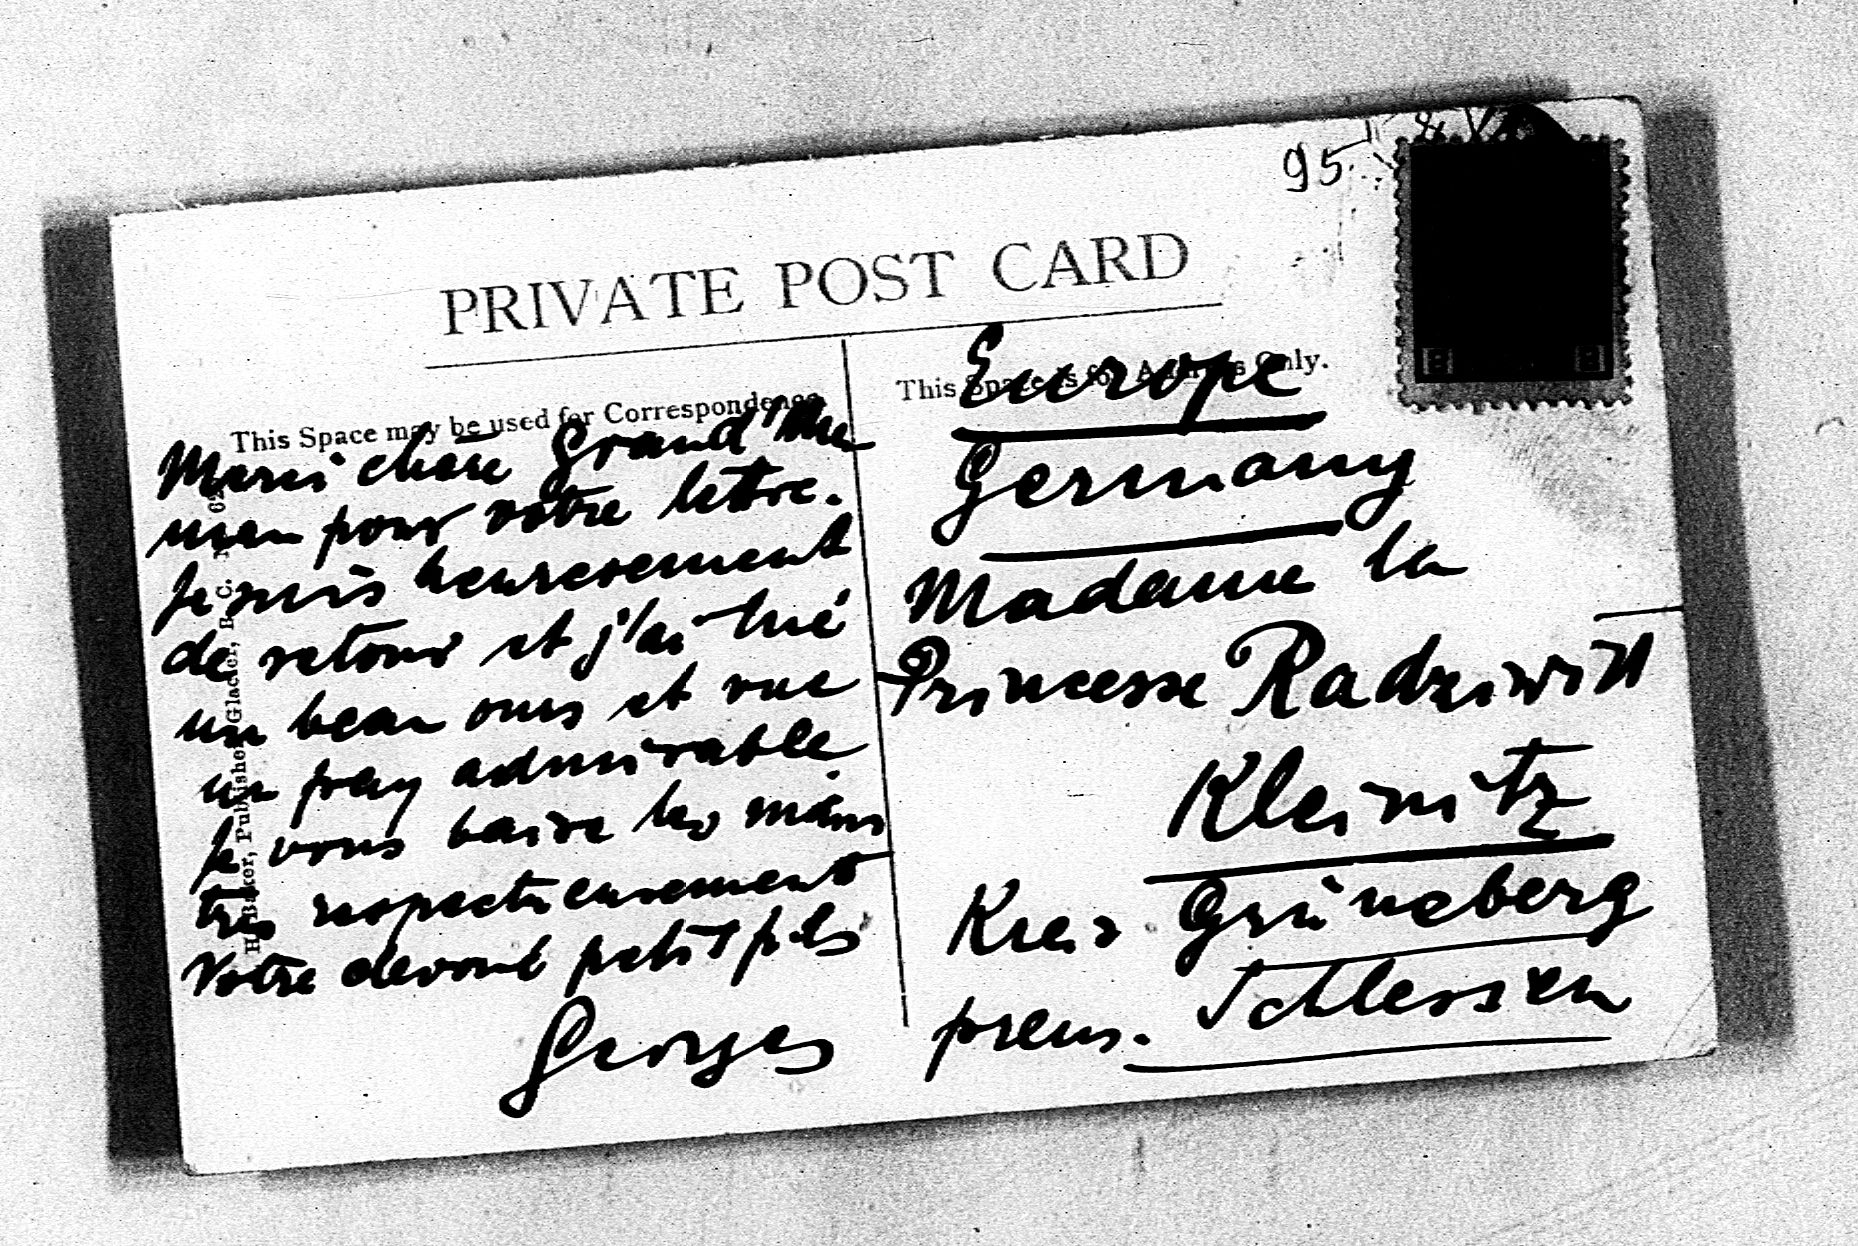 95
PRIVATE POST CARD
This Space may be used for Correspondence
This Space is for Address Only.
Merci chère Grand'Ma
man pour votre lettre.
Je suis heureusement
de retour et j'ai tué
un beau ours et vue
un pay admirable.
Je vous baise les mains
très respectueusement
Votre devoué petit fils
Georges
Europe
Germany
Madame la
Princesse Radziwill
Kleinitz
Kreis Grüneberg
preus. Schlesien
Publisher, Glacier, B. C.
8 8